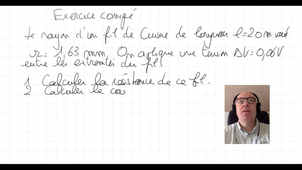 Exercice corrigé
Le rayon d'un fil de Cuivre de longueur l=20m vaut
r = 1,63 mm. On applique une tension ΔV=0,06V
entre les extremités du fil
1 Calculer la résistance de ce fil.
2 Calculer le cou